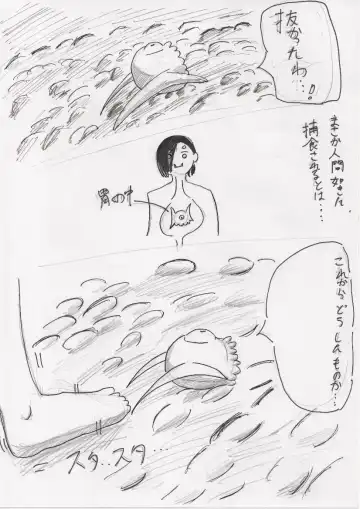 抜かったわ…!
まさか人間如きに
捕食されるとは……
胃の中
これからどうしたものか…
スタ…スタ…